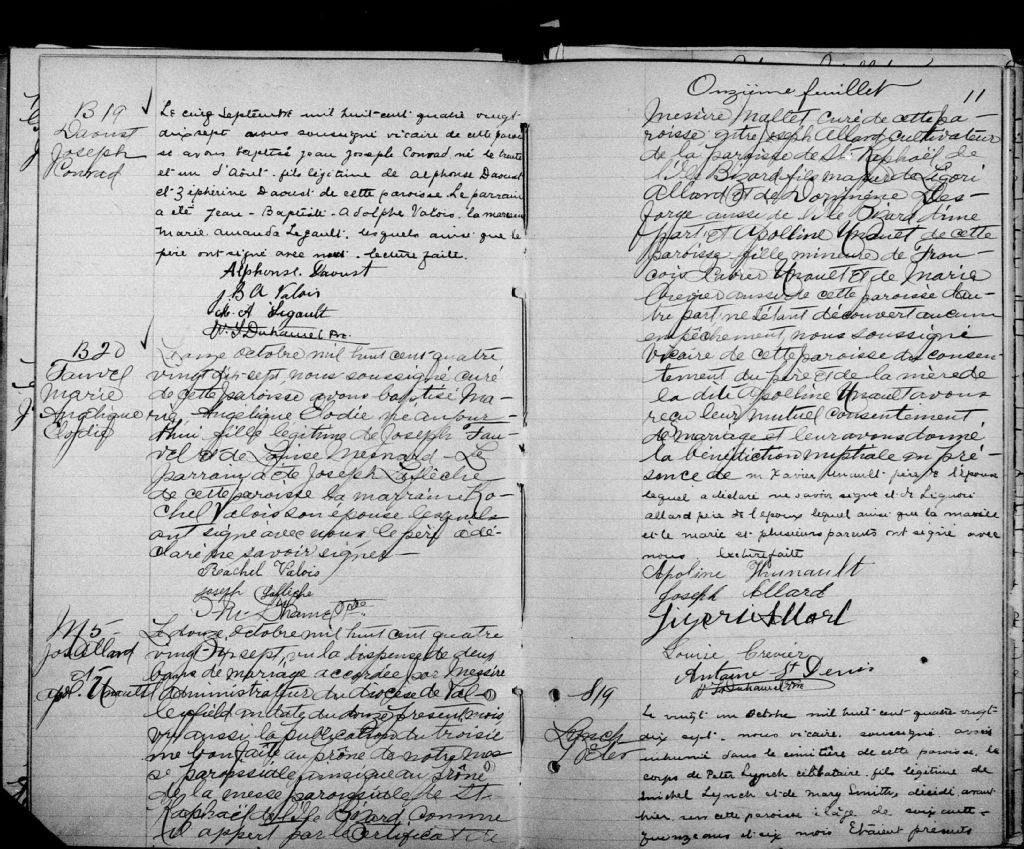 B 19
Daoust
Joseph
Conrad
Le cinq Septembre mil huit-cent quatre vingt
dix sept nous soussigné vicaire de cette parois
se avons baptisé Jean Joseph Conrad né le trente
et un d'Août. fils légitime de Alphonse Daoust
et Zéphérine Daoust de cette paroisse. Le parrain
a été Jean-Baptiste-Adolphe Valois. la marraine
Marie Amanda Legault. lesquels ainsi que le
père ont signé avec nous. lecture faite.
Alphonse Daoust
J. B A Valois
M. A Legault
Duhamel Ptr.
B 20
Fauvel
Marie
Angélique
Elodie
Le onze octobre mil huit cent quatre
vingt dix-sept, nous soussigné curé
de cette paroisse avons baptisé Ma-
rie Angélique Elodie née aujour-
d'hui fille légitime de Joseph Fau-
vel et de Louise Mesnard. Le
parrain a été Joseph Laflèche
de cette paroisse la marraine Ra-
chel Valois son épouse lesquels
ont signé avec nous le père a dé-
claré ne savoir signer
Rachel Valois
Joseph Laflèche
M 5
Jos. Allard
et
apol. Unault
Le douze octobre mil huit cent quatre
vingt dix sept, vu la dispense de deux
bans de mariage accordée par Messire
l'administrateur du diocèse de Val-
leyfield en date du douze présent mois
vu aussi la publication du troisiè
me ban faite au prône de notre mes
se paroissiale ainsi que au prône
de la messe paroissiale de St.
Raphaël de l'Ile Bizard comme
il appert par le certificat de
Onzième feuillet
11
Messire Mallet curé de cette pa-
roisse entre Joseph Allard cultivateur
de la paroisse de St. Raphaël de
l'Ile Bizard fils majeur de Ligori
Allard et de Dominène Des
forge aussi de l'Ile Bizard d'une
part et Apolline Unault de cette
paroisse fille mineure de Fran-
çois Xavier Unault et de Marie
Crevier aussi de cette paroisse d'au-
tre part ne s'étant découvert aucun
empêchement, nous soussigné
vicaire de cette paroisse du consen-
tement du père et de la mère de
la dite Apolline Unault avons
reçu leur mutuel consentement
de mariage et leur avons donné
la bénédiction nuptiale en pré-
sence de m Xavier Unault père de l'épouse
lequel a déclaré ne savoir signé et de Liguori
allard père de l'époux lequel ainsi que la mariée
et le marié et plusieurs parents ont signé avec
nous. lecture faite
Apoline Thunault
Joseph Allard
Ligori Allard
Louise Crevier
Antoine St Denis
Duhamel Ptr
S 19
Lynch
Peter
Le vingt un Octobre mil huit cent quatre vingt
dix sept. nous vicaire soussigné avons
inhumé dans le cimetière de cette paroisse, le
corps de Peter Lynch célibataire fils légitime de
Michel Lynch et de Mary Smith, décédé avant
hier en cette paroisse à l'âge de soixante-
quinze ans et six mois Etaient présents